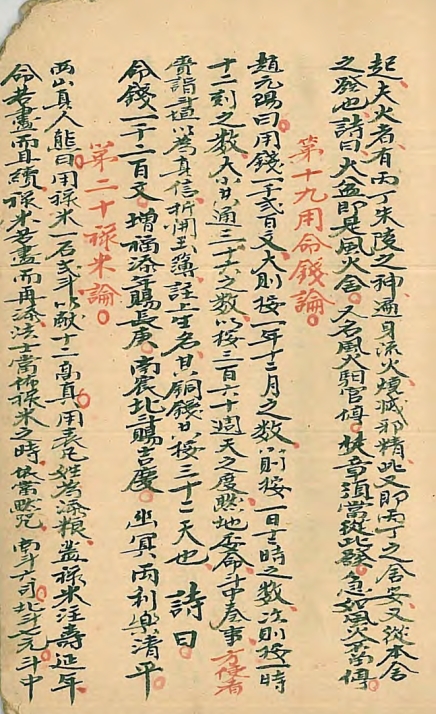 起夫火者有丙丁朱陵之神遍身流火煙滅邪精此又即丙丁之舍安又從本舍
之發也詩曰火盆即是風火舍又名風火馹官傳狀章須當從此發急如風火萬傳
第十九用命錢論
趙元陽曰用錢一千貳百文大則按一年十二月之數小則按一日十二時之數次則按一時
十二刻之數大小共通三十六之數以按三百六十週天之度黙地委命斗中奏事方使者
賫詣三道以為真信折開玉簿註上生名其銅錢以按三十二天也 詩曰
命錢一千二百文 增福添壽賜長庚 南宸北斗賜吉慶 幽冥兩利樂清平
第二十祿米論
西山真人熊曰用祿米一石貳斗以敵十二高真用表凡姓為添粮蓋祿米注壽延年
命若盡而且續祿米若盡而再添法士當 祿米之時 當黙咒 南斗六司北斗七元斗中